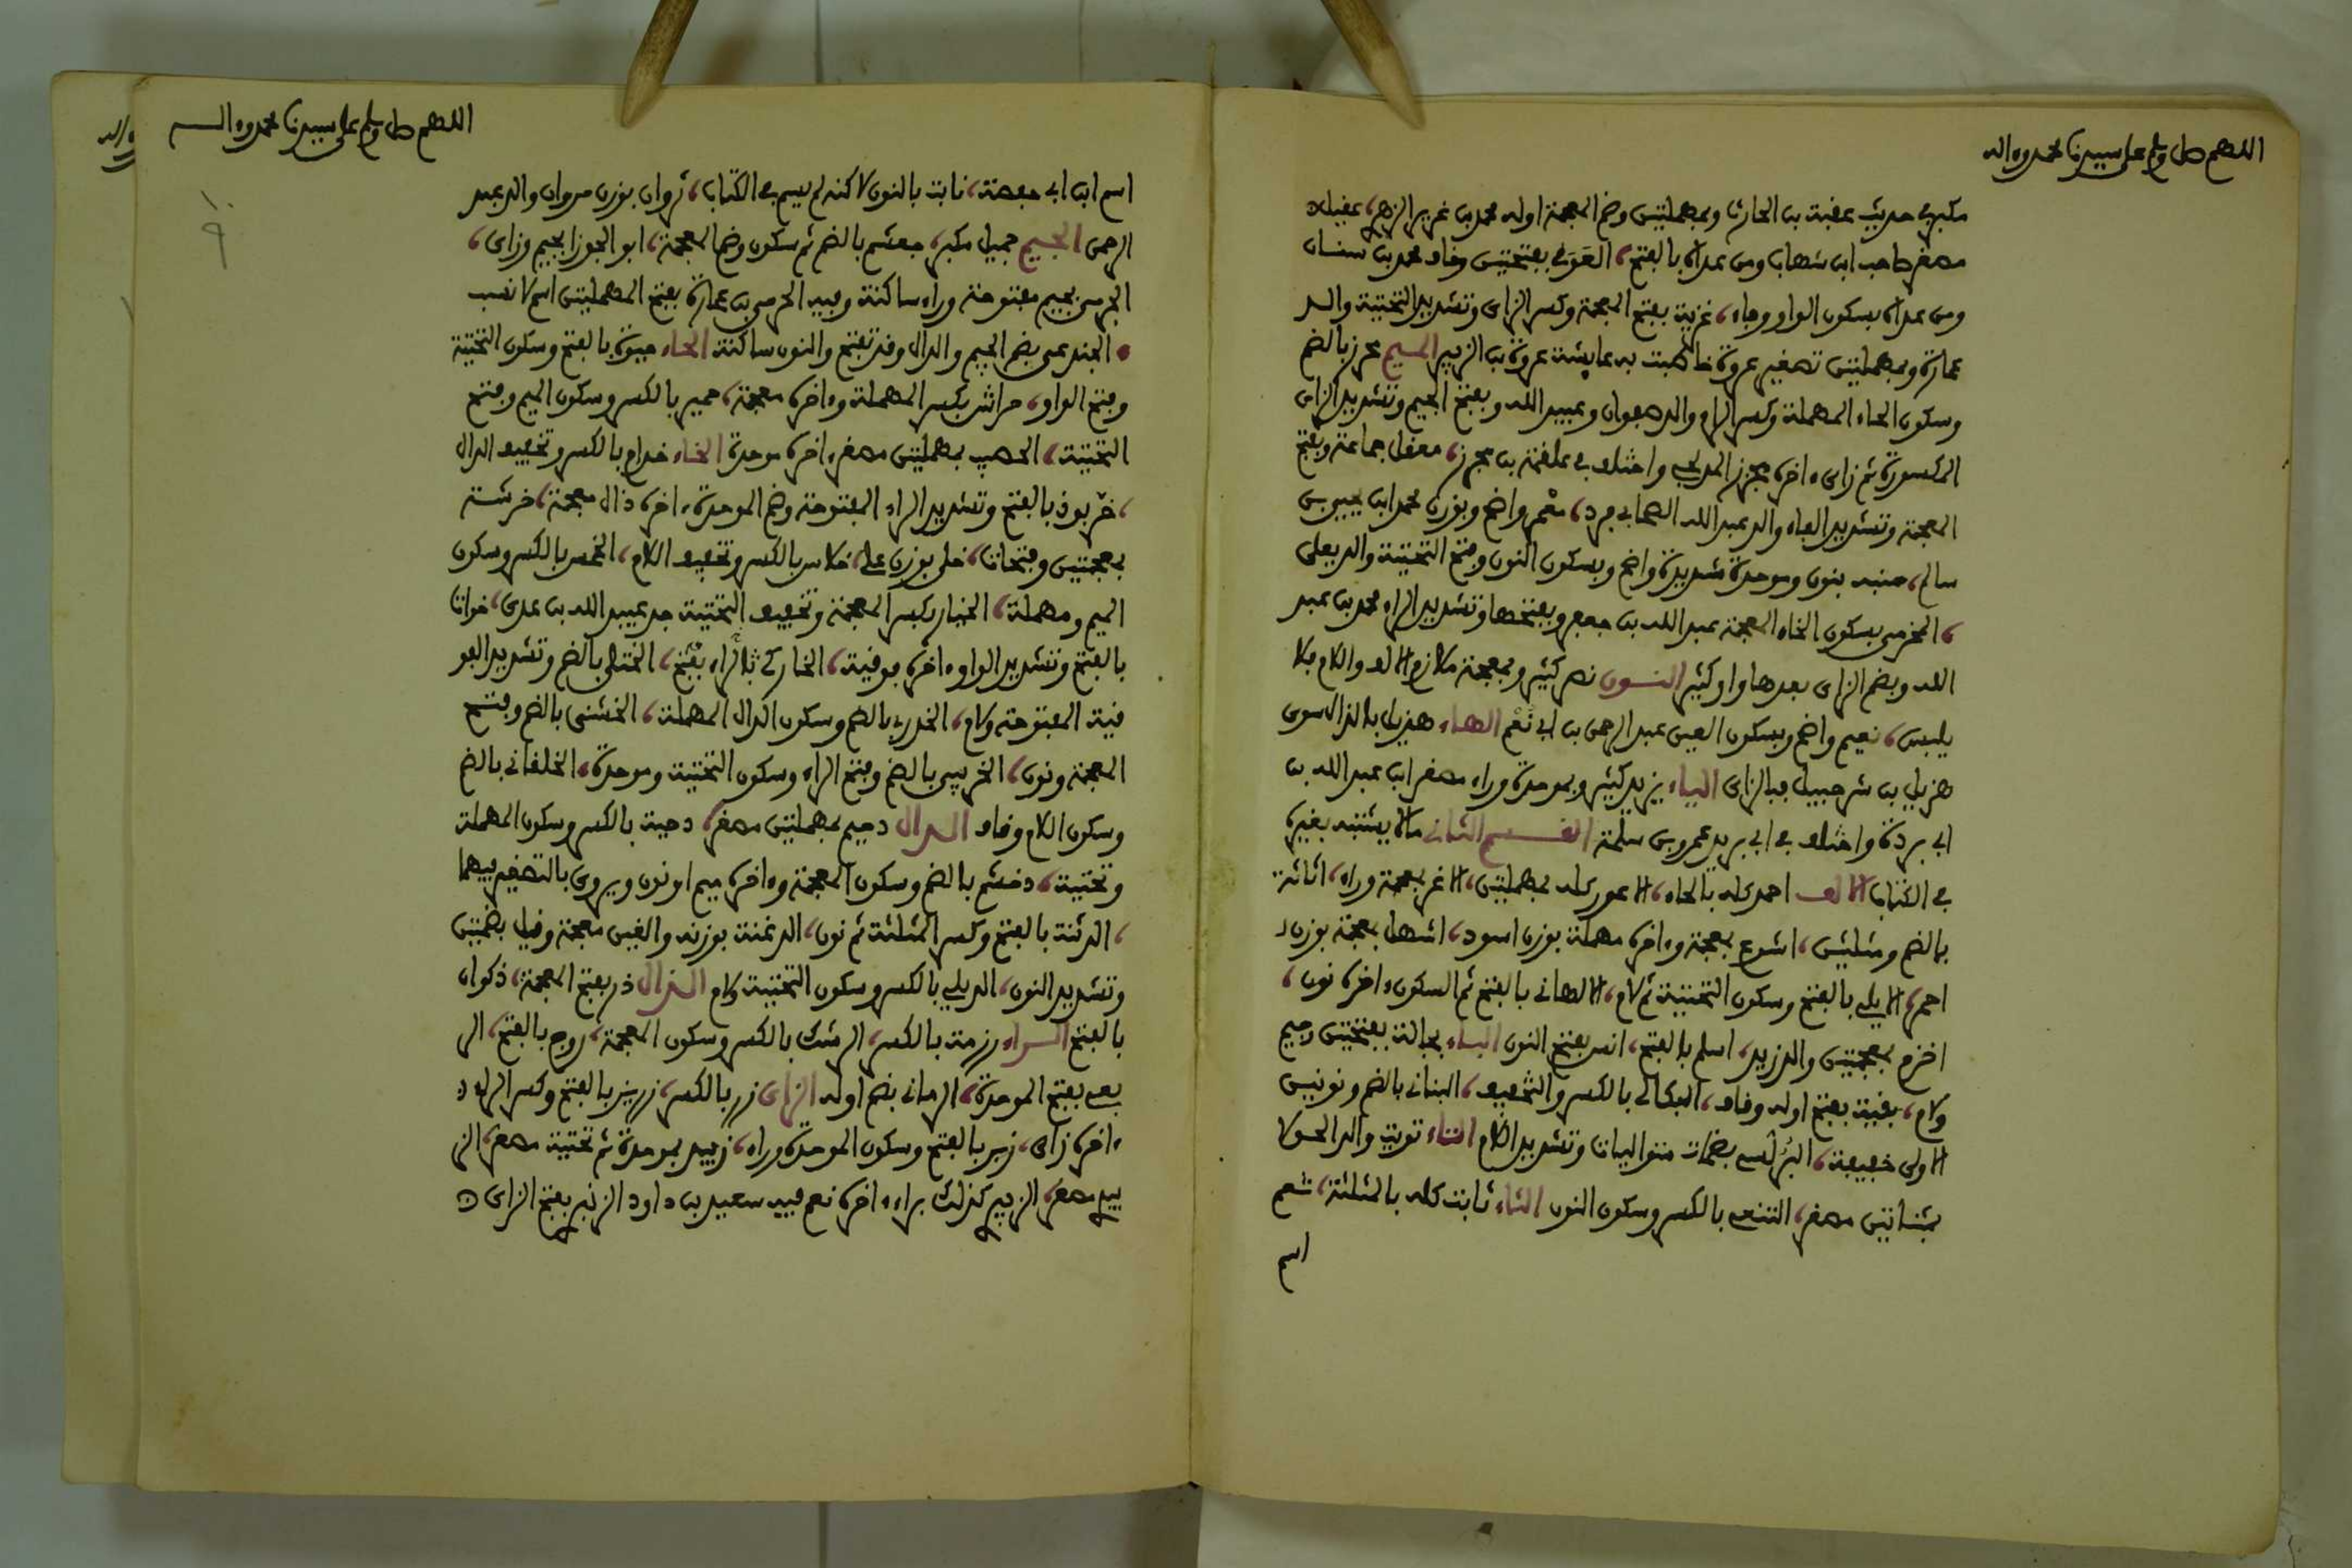 اللهم صل وسلم على سيدنا محمد وءاله
مكبر في حديث عقبة بن الحارث وبمهملتين وضم المعجمة اوله محمد بن غرير الزهري، عقيل
مصغر صاحب ابن شهاب ومن عداه بالفتح، العَوَفي بفتحتين وقاف محمد بن سنان
ومن عداه بسكون الواو وفاء، غزية بفتح المعجمة وكسر الزاى وتشديد التحتية والد
عمارة وبمهملتين تصغير عروة خاطبت به عايشة عروة بن الزبير الميم محرز بالضم
وسكون الحاء المهملة وكسر الراء والد صفوان وعبيد الله وبفتح الجيم وتشديد الزاى
المكسورة ثم زاى ءاخره مجزز المدلجي واختلف في علقمة بن مجزز، مغفل جماعة وبفتح
المعجمة وتشديد الفاء والد عبد الله الصحابي فرد، معمر واضح وبوزن محمد ابن يحيى بن
سالم، منبه بنون وموحدة شديدة واضح وبسكون النون وفتح التحتية والد يعلى
، المخرمي بسكون الخاء المعجمة عبد الله بن جعفر وبفتحها وتشديد الراء محمد بن عبد
الله وبضم الزاى بعدها واو كثير النون نصر كثير وبمعجمة ملازم الالف واللام فلا
يلبس، نعيم واضح وبسكون العين عبد الرحمن بن ابي نُعْم الهاء هذيل بالذال سوى
هزيل بن شرحبيل فبالزاى الياء يزيد كثير وبموحدة وراء مصغر ابن عبد الله بن
ابي بردة واختلف في ابي بريد عمرو بن سلمة القسم الثاني ما لا يشتبه بغيره
في الكتاب الالف احمد كله بالحاء، الاعور كله بمهملتين، الاغر بمعجمة وراء، اثاثة
بالضم ومثلثتين، اشوع بمعجمة وءاخره مهملة بوزن اسود، اشهل بمعجمة بوزن
احمر، الايلي بالفتح وسكون التحتية ثم لام، الالهاني بالفتح ثم السكون ءاخره نون،
اخزم بمعجمتين والد زيد، اسلم بالفتح، انس بفتح النون الباء بجالة بفتحتين وجيم
ولام، بقية بفتح اوله وقاف، البكالي بالكسر والتخفيف، البناني بالضم ونونين
الاولى خفيفة، البُرُلُّسي بضمات متواليات وتشديد اللام التاء تويت والد الحولا
بمثناتين مصغر، التنعي بالكسر وسكون النون الثاء ثابت كله بالمثلثة، نعم
اسم
اللهم صل وسلم على سيدنا محمد وءاله
اسم ابن ابي حفصة، نابت بالنون لاكنه لم يسم في الكتاب، ثروان بوزن مروان والد عبد
الرحمن الجيم جميل مكبر، جعشم بالضم ثم سكون وضم المعجمة، ابو الجوزا بجيم وزاى،
الجرمي بجيم مفتوحة وراء ساكنة وفيه الحرمي بن عمارة بفتح المهملتين اسم لا نسب
، الجندعي بضم الجيم والدال وقد تفتح والنون ساكنة الحاء حيوة بالفتح وسكون التحتية
وفتح الواو، حراش بكسر المهملة وءاخره معجمة، حمير بالكسر وسكون الميم وفتح
التحتية، الحصيب بمهملتين مصغر ءاخره موحدة الخاء خدام بالكسر وتخفيف الدال
، خرّبوذ بالفتح وتشديد الراء المفتوحة وضم الموحدة ءاخره ذال معجمة، خرشة
بمعجمتين وفتحات، خلي بوزن علي، خلاس بالكسر وتخفيف اللام، الخمس بالكسر وسكون
الميم ومهملة، الخيار بكسر المعجمة وتخفيف التحتية جد عبيد الله بن عدى، خوات
بالفتح وتشديد الواو ءاخره فوقية، الخاركي بالراء بفتح، الختلي بالضم وتشديد الفو
قية المفتوحة ولام، الخدري بالضم وسكون الدال المهملة، الخشني بالضم وفتح
المعجمة ونون، الخريبي بالضم وفتح الراء وسكون التحتية وموحدة، الخلقاني بالضم
وسكون اللام وقاف الدال دحيم بمهملتين مصغر، دحية بالكسر وسكون المهملة
وتحتية، دخشم بالضم وسكون المعجمة وءاخره ميم او نون ويروى بالتصغير فيهما
، الدثنة بالفتح وكسر المثلثة ثم نون، الدغنة بوزنه والغين معجمة وقيل بضمتين
وتشديد النون، الديلي بالكسر وسكون التحتية ولام الذال ذر بفتح المعجمة، ذكوان
بالفتح الراء رزمة بالكسر، الرشك بالكسر وسكون المعجمة، روح بالفتح، الر
بعي بفتح الموحدة، الرماني بضم اوله الزاى زر بالكسر، زرير بالفتح وكسر الراء
ءاخره زاى، زبر بالفتح وسكون الموحدة وراء، زبيد بموحدة ثم تحتية مصغر، الز
بيدي مصغر، الزبيري كذلك براء ءاخره نعم فيه سعيد بن داود الزنبري بفتح الزاى